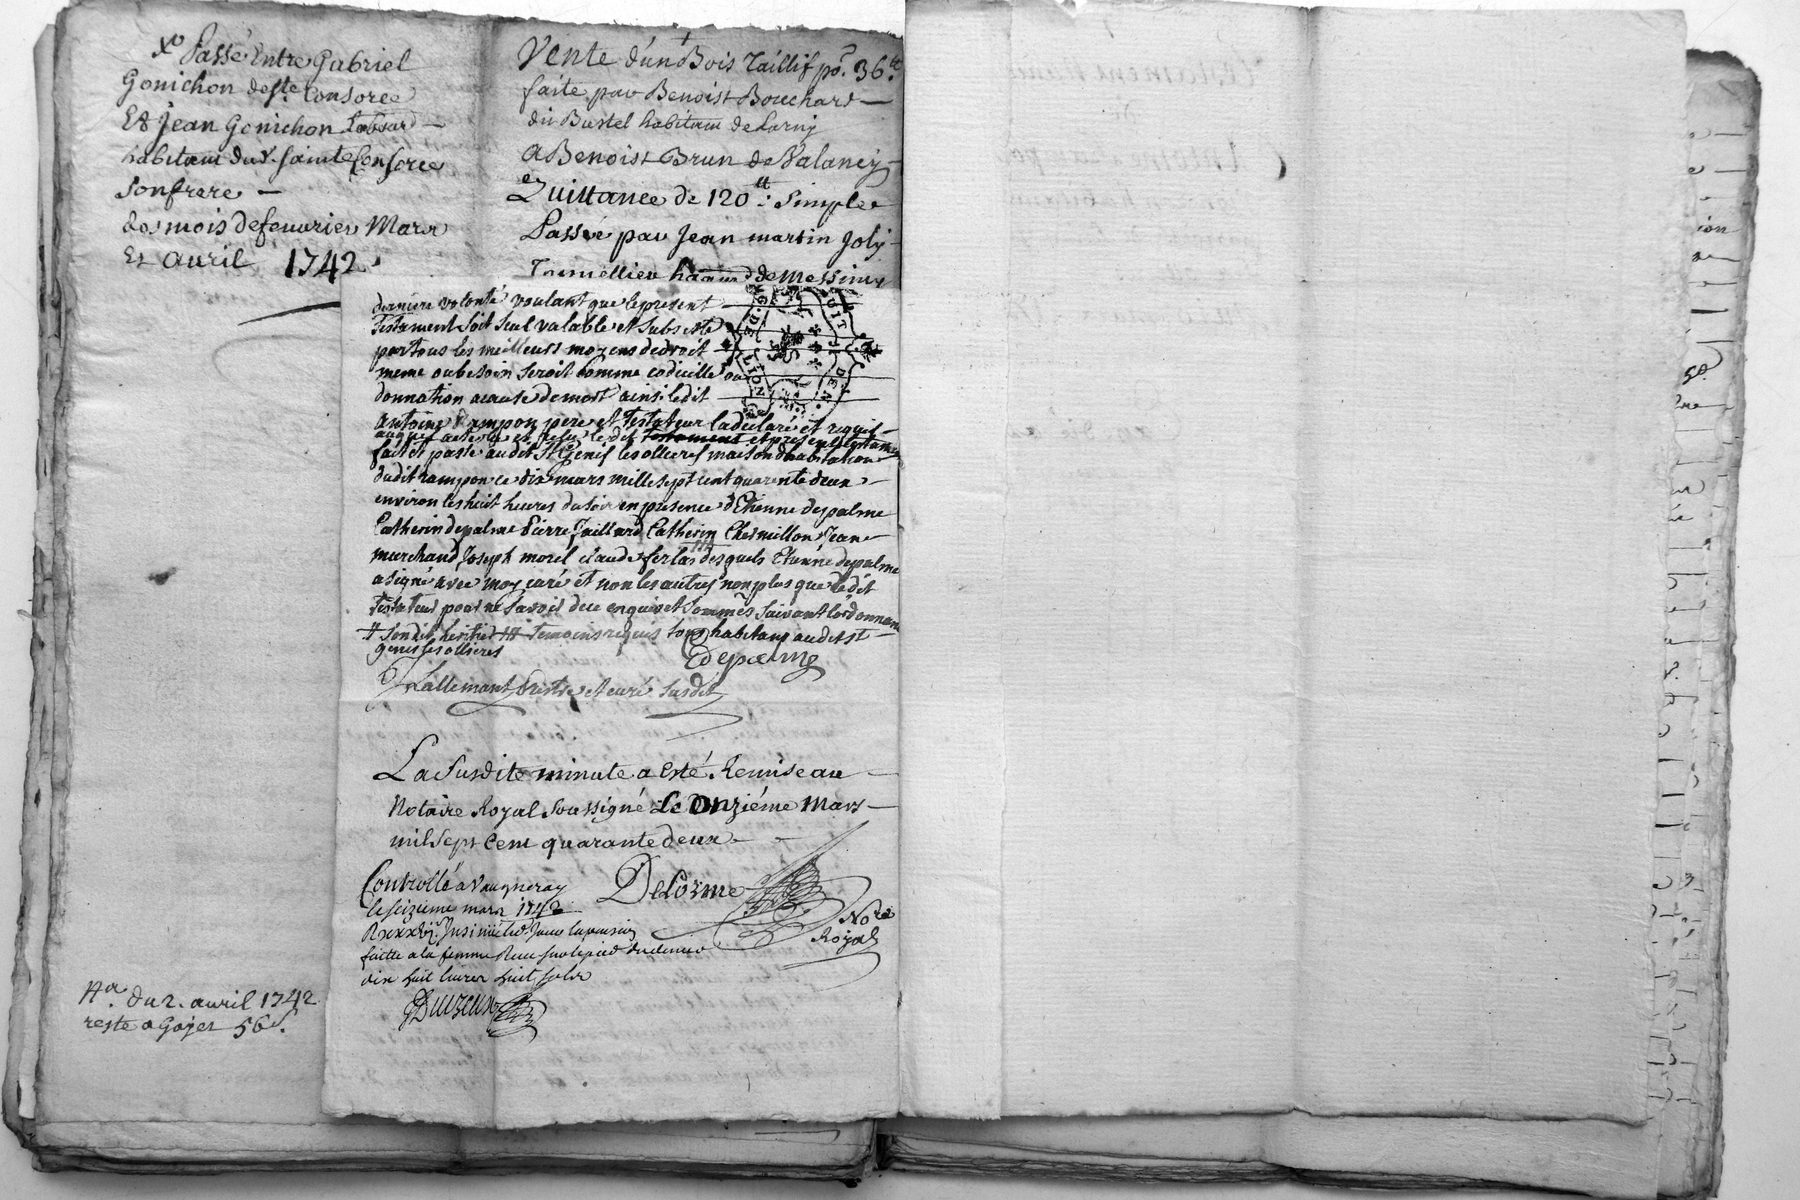 Passé Entre Gabriel
Gonichon de Ste Consorce
Et Jean Gonichon Labour
habitant du d. Sainte Consorce
son frere
des mois de feuvrier Mars
Et avril 1742
Na. du 2. avril 1742
reste a Gajer 56 s.
Vente d'un Bois Taillif po. 36 tt
faite par Benoist Bouchard
dit Bastel habitant de
a Benoist Brun de Valancy
Quittance de 120 tt Simple
Passée par Jean martin Joly
habitant de messimy
derniere volonté voulant que le present
Testament soit seul valable et subsiste
par tous les meilleurs moyens de droit
meme ou besoin seroit comme codicille ou
donnation a cause de mort ainsi ledit
antoine Rampon pere et Testateur la declaré et requis
fait et passé audit St Genis les ollieres maison d'habitation
dudit rampon ce dix mars mille sept cent quarente deux
environ les huit heures du soir en presence d'Etienne depalme
Catherin depalme Pierre Jaillard Catherin Chermillon Jean
marchand Joseph morel claude ferlat desquels Etienne depalme
a signé avec moy curé et non les autres non plus que ledit
Testateur pour ne savoir de ce enquis et sommés suivant l'ordonnance
# son dit heritier ## Temoins requis tous habitans audit st
genis les ollieres
Edepalme
Lallemant prestre et curé susdit
La Susdite minute a Esté Remise au
Notaire Royal Soussigné Le Onziéme Mars
mil Sept Cent quarante deux
DeLorme
Nore
Royal
Controllé a Vaugneray
le seizieme mars 1742
faitte a la femme
dix huit livres huit sols